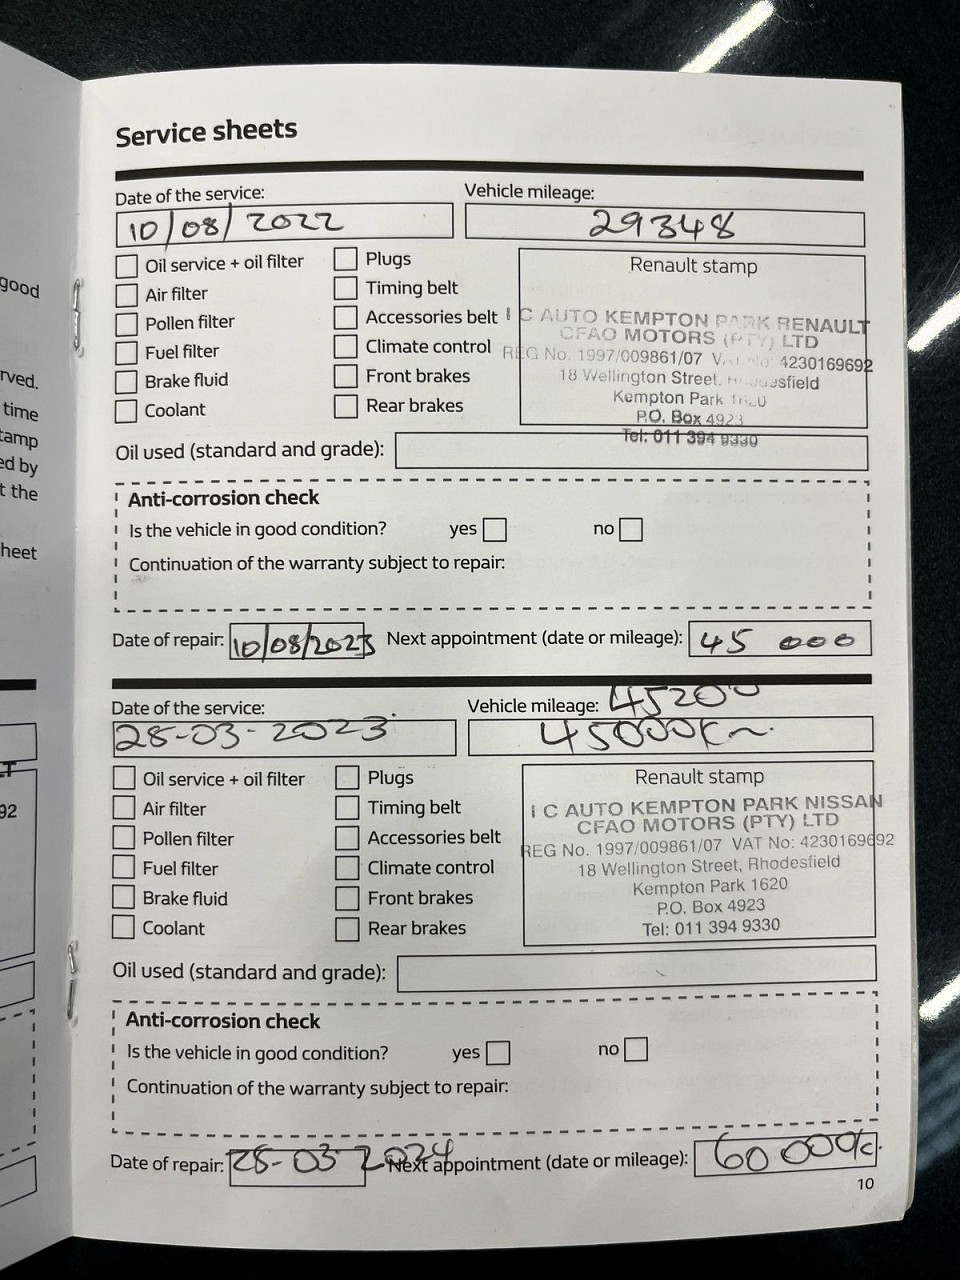 good
rved.
time
tamp
ed by
t the
heet
LT
92
Service sheets
Date of the service: Vehicle mileage:
10/08/2022 29348
Oil service + oil filter Plugs
Air filter Timing belt
Pollen filter Accessories belt
Fuel filter Climate control
Brake fluid Front brakes
Coolant Rear brakes
Renault stamp
I C AUTO KEMPTON PARK RENAULT
CFAO MOTORS (PTY) LTD
REG No. 1997/009861/07 VAT No: 4230169692
18 Wellington Street, Rhodesfield
Kempton Park 1620
P.O. Box 4923
Tel: 011 394 9330
Oil used (standard and grade):
Anti-corrosion check
Is the vehicle in good condition? yes no
Continuation of the warranty subject to repair:
Date of repair: 10/08/2023 Next appointment (date or mileage): 45 000
Date of the service: Vehicle mileage: 45200
28-03-2023 45000km
Oil service + oil filter Plugs
Air filter Timing belt
Pollen filter Accessories belt
Fuel filter Climate control
Brake fluid Front brakes
Coolant Rear brakes
Renault stamp
I C AUTO KEMPTON PARK NISSAN
CFAO MOTORS (PTY) LTD
REG No. 1997/009861/07 VAT No: 4230169692
18 Wellington Street, Rhodesfield
Kempton Park 1620
P.O. Box 4923
Tel: 011 394 9330
Oil used (standard and grade):
Anti-corrosion check
Is the vehicle in good condition? yes no
Continuation of the warranty subject to repair:
Date of repair: 28-03-2024 Next appointment (date or mileage): 60 000k
10